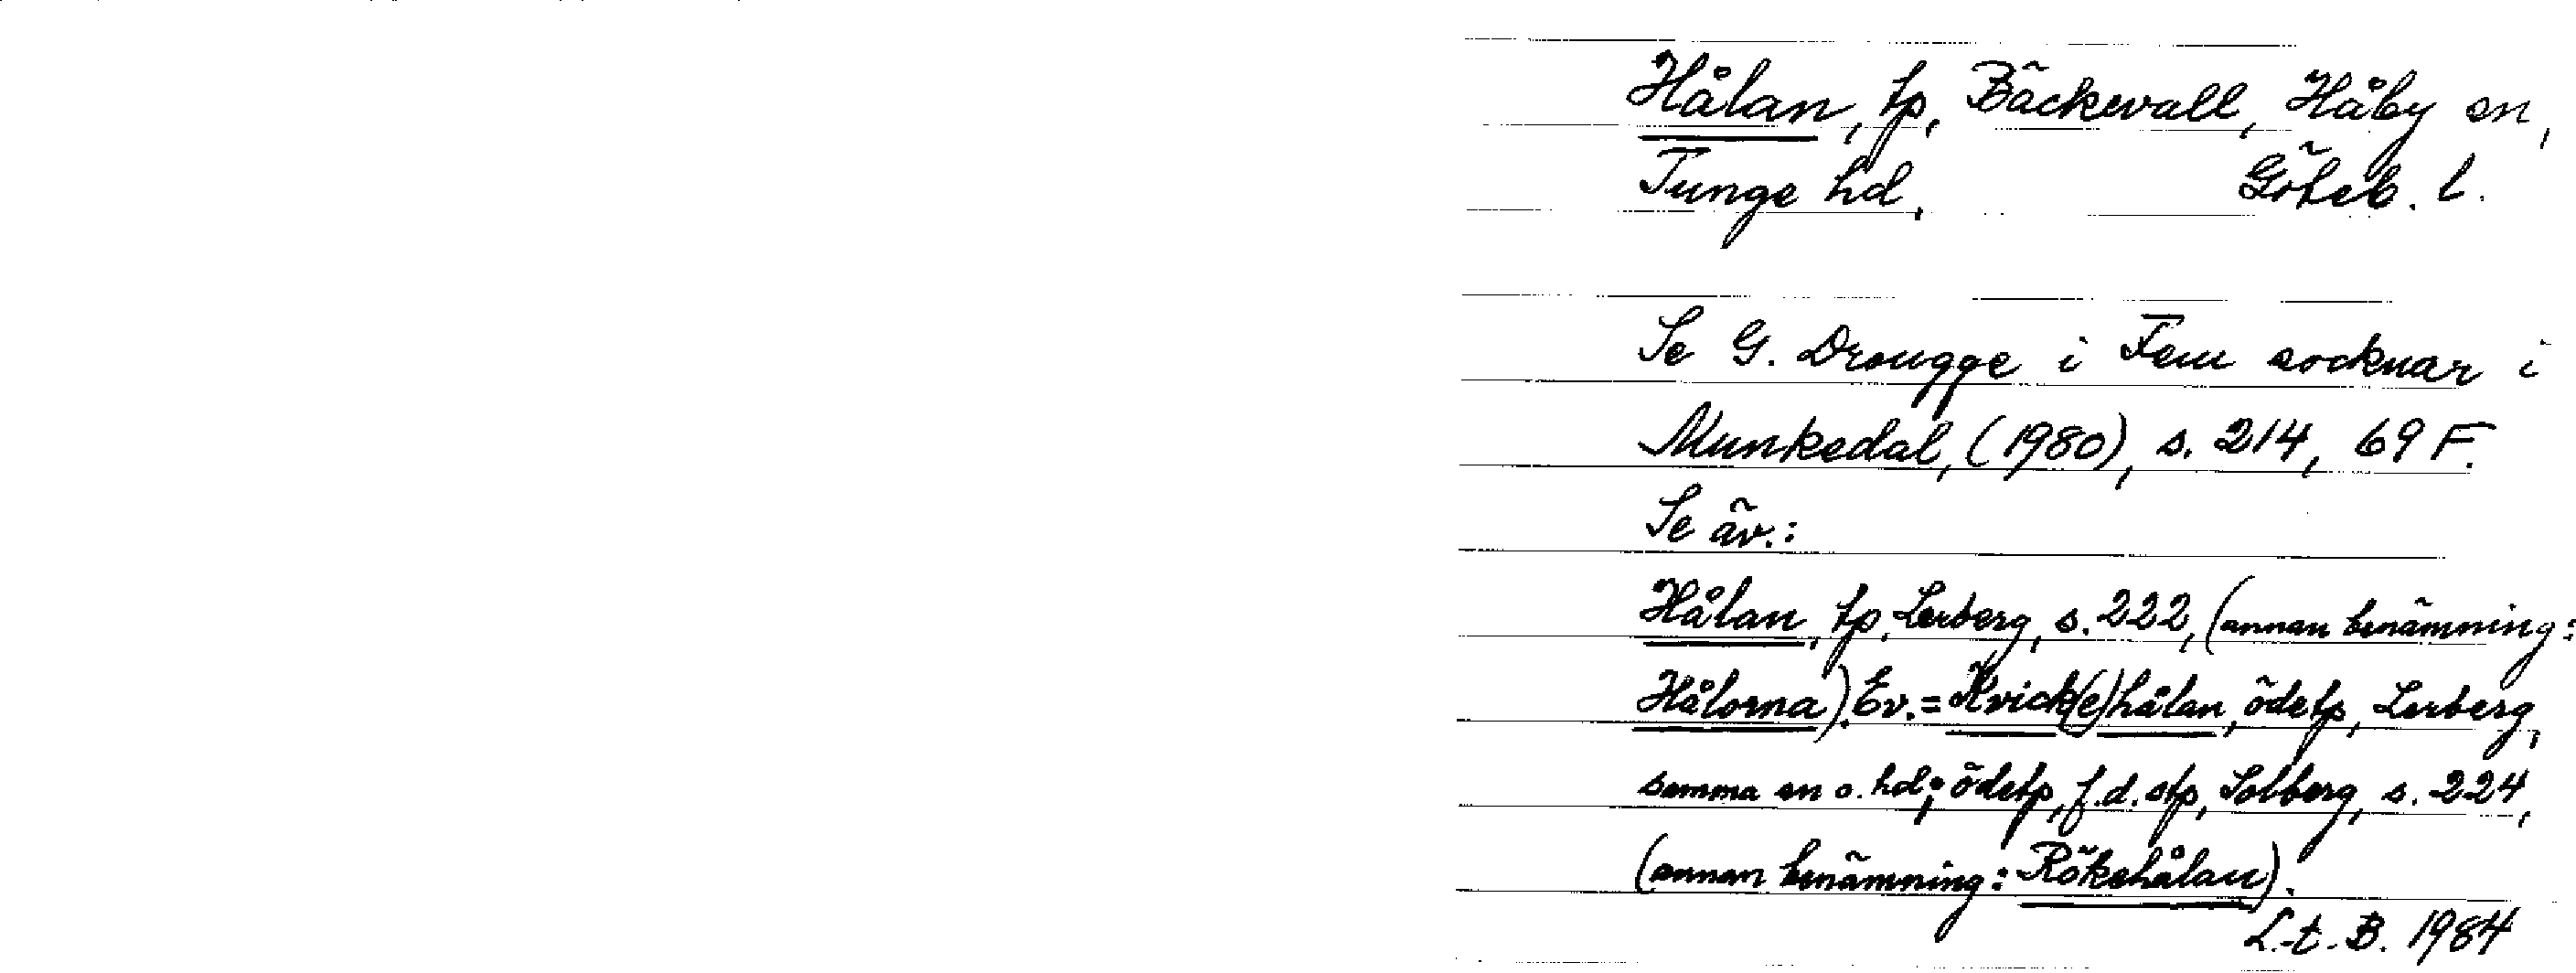 Hålan, tp, Bäckevall, Håby sn,
Tunge hd, Göteb. l.
Se G. Drougge i Fem socknar i
Munkedal, (1980), s. 214, 69 F.
Se äv.:
Hålan, tp, Lerberg, s. 222, (annan benämning:
Hålorna). Ev. = Kvick(e)hålan, ödetp, Lerberg,
samma sn o. hd; ödetp, f.d. stp, Solberg, s. 224,
(annan benämning: Rökehålan).
L.t. B. 1984